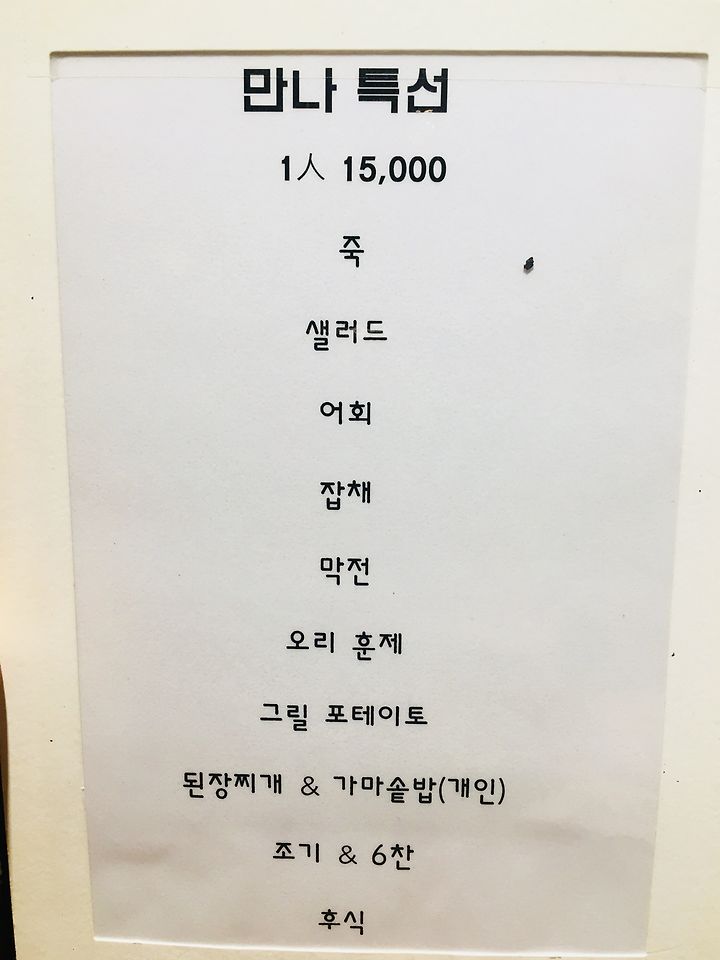 만나 특선
1人 15,000
죽
샐러드
어회
잡채
막전
오리 훈제
그릴 포테이토
된장찌개 & 가마솥밥(개인)
조기 & 6찬
후식